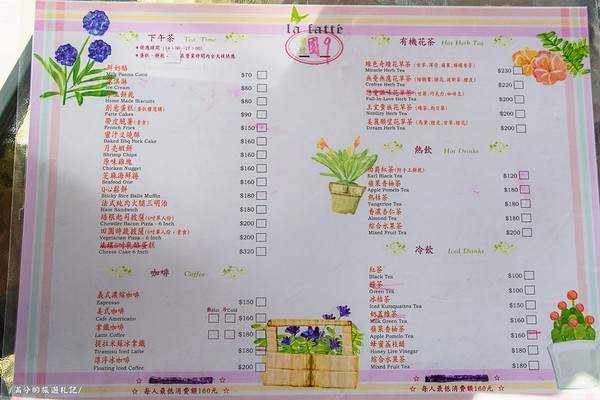 la fatté
園9
下午茶 Tea Time
鮮奶酪
Milk Panna Cotte $70
冰淇淋
Ice Cream $80
手工餅乾
Home Made Biscuits $80
創意蛋糕
Fatte Cakes $90
帶皮脆薯(素食)
French Fries $150
蜜汁叉燒酥
Baked Bbq Pork Cake $160
月亮蝦餅
Shrimp Chips $160
原味雞塊
Chicken Nugget $160
芝麻海鮮捲
Seafood One $160
Q心鬆餅
Sticky Rice Balls Muffin $180
法式炖肉火腿三明治
Ham Sandwich $180
培根起司披薩(6吋單人份)
Chowder Bacon Pizza - 6 Inch $200
田園時蔬披薩(6吋單人份,素食)
Vegetarian Pizza - 6 Inch $200
Cheese Cake 6 Inch $320
咖啡 Coffee
義式濃縮咖啡
Espresso $150
Hot Cold
美式咖啡
Cafe Americano $160
拿鐵咖啡
Latte Coffee $180
提拉米蘇冰拿鐵
Tiramisu Iced Latte $180
漂浮冰咖啡
Floating Iced Coffee $200
☆ 每人最低消費額160元 ☆
有機花茶 Hot Herb Tea
綠色奇蹟花草茶
Miracle Herb Tea $230
Crefree Herb Tea $220
Fall-In-Love Herb Tea $200
王宮貴族花草茶
Nobility Herb Tea $200
美麗願望花草茶
Dream Herb Tea $200
熱飲 Hot Drinks
伯爵紅茶(附手工餅乾)
Karl Black Tea $120
蘋果香柚茶
Apple Pomelo Tea $180
熱桔茶
Tangerine Tea $180
香濃杏仁茶
Almond Tea $180
綜合水果茶
Mixed Fruit Tea $200
冷飲 Iced Drinks
紅茶
Black Tea $100
綠茶
Green Tea $100
冰桔茶
Iced Kumquatea Tea $150
奶蓋綠茶
Milk Green Tea $160
蘋果香柚茶
Apple Pomelo Tea $160
蜂蜜荔枝醋
Honey Live Vinegar $160
綜合水果茶
Mixed Fruit Tea $180
☆ 每人最低消費額160元 ☆
/滿分的旅遊札記/